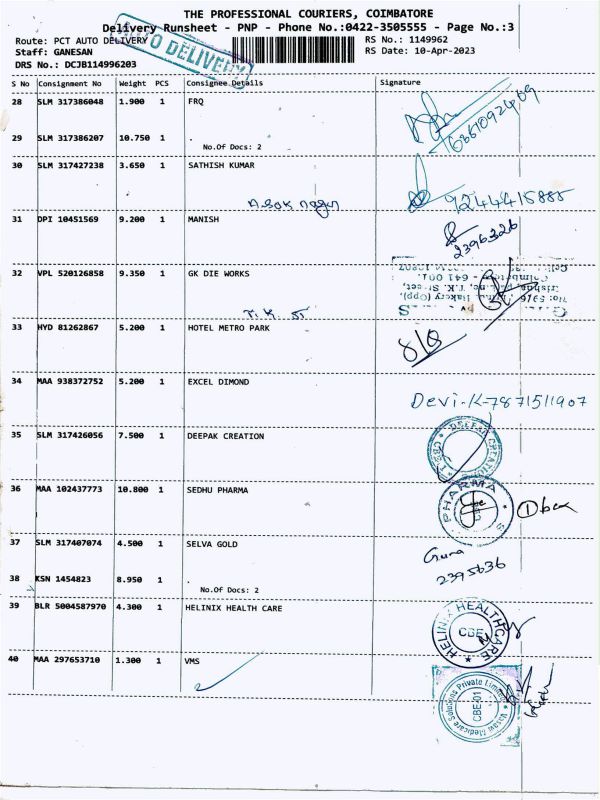 THE PROFESSIONAL COURIERS, COIMBATORE
Delivery Runsheet - PNP - Phone No.:0422-3505555 - Page No.:3
Route: PCT AUTO DELIVERY
RS No.: 1149962
Staff: GANESAN
RS Date: 10-Apr-2023
DRS No.: DCJB114996203
AUTO DELIVERY
S No Consignment No Weight PCS Consignee Details Signature
28 SLM 317386048 1.900 1 FRQ
29 SLM 317386207 10.750 1 .
No.Of Docs: 2
30 SLM 317427238 3.650 1 SATHISH KUMAR
9244415885
31 DPI 10451569 9.200 1 MANISH
2396326
32 VPL 520126858 9.350 1 GK DIE WORKS
33 HYD 81262867 5.200 1 HOTEL METRO PARK
34 MAA 938372752 5.200 1 EXCEL DIMOND
Devi-K-7871511907
35 SLM 317426056 7.500 1 DEEPAK CREATION
DEEPAK CREATION
36 MAA 102437773 10.800 1 SEDHU PHARMA
PHARMA
1 box
37 SLM 317407074 4.500 1 SELVA GOLD
Guna
2395636
38 KSN 1454823 8.950 1 .
No.Of Docs: 2
39 BLR 5004587970 4.300 1 HELINIX HEALTH CARE
HELINIX HEALTHCARE
CBE
40 MAA 297653710 1.300 1 VMS
Medicare Solutions Private Limited
CBE-01